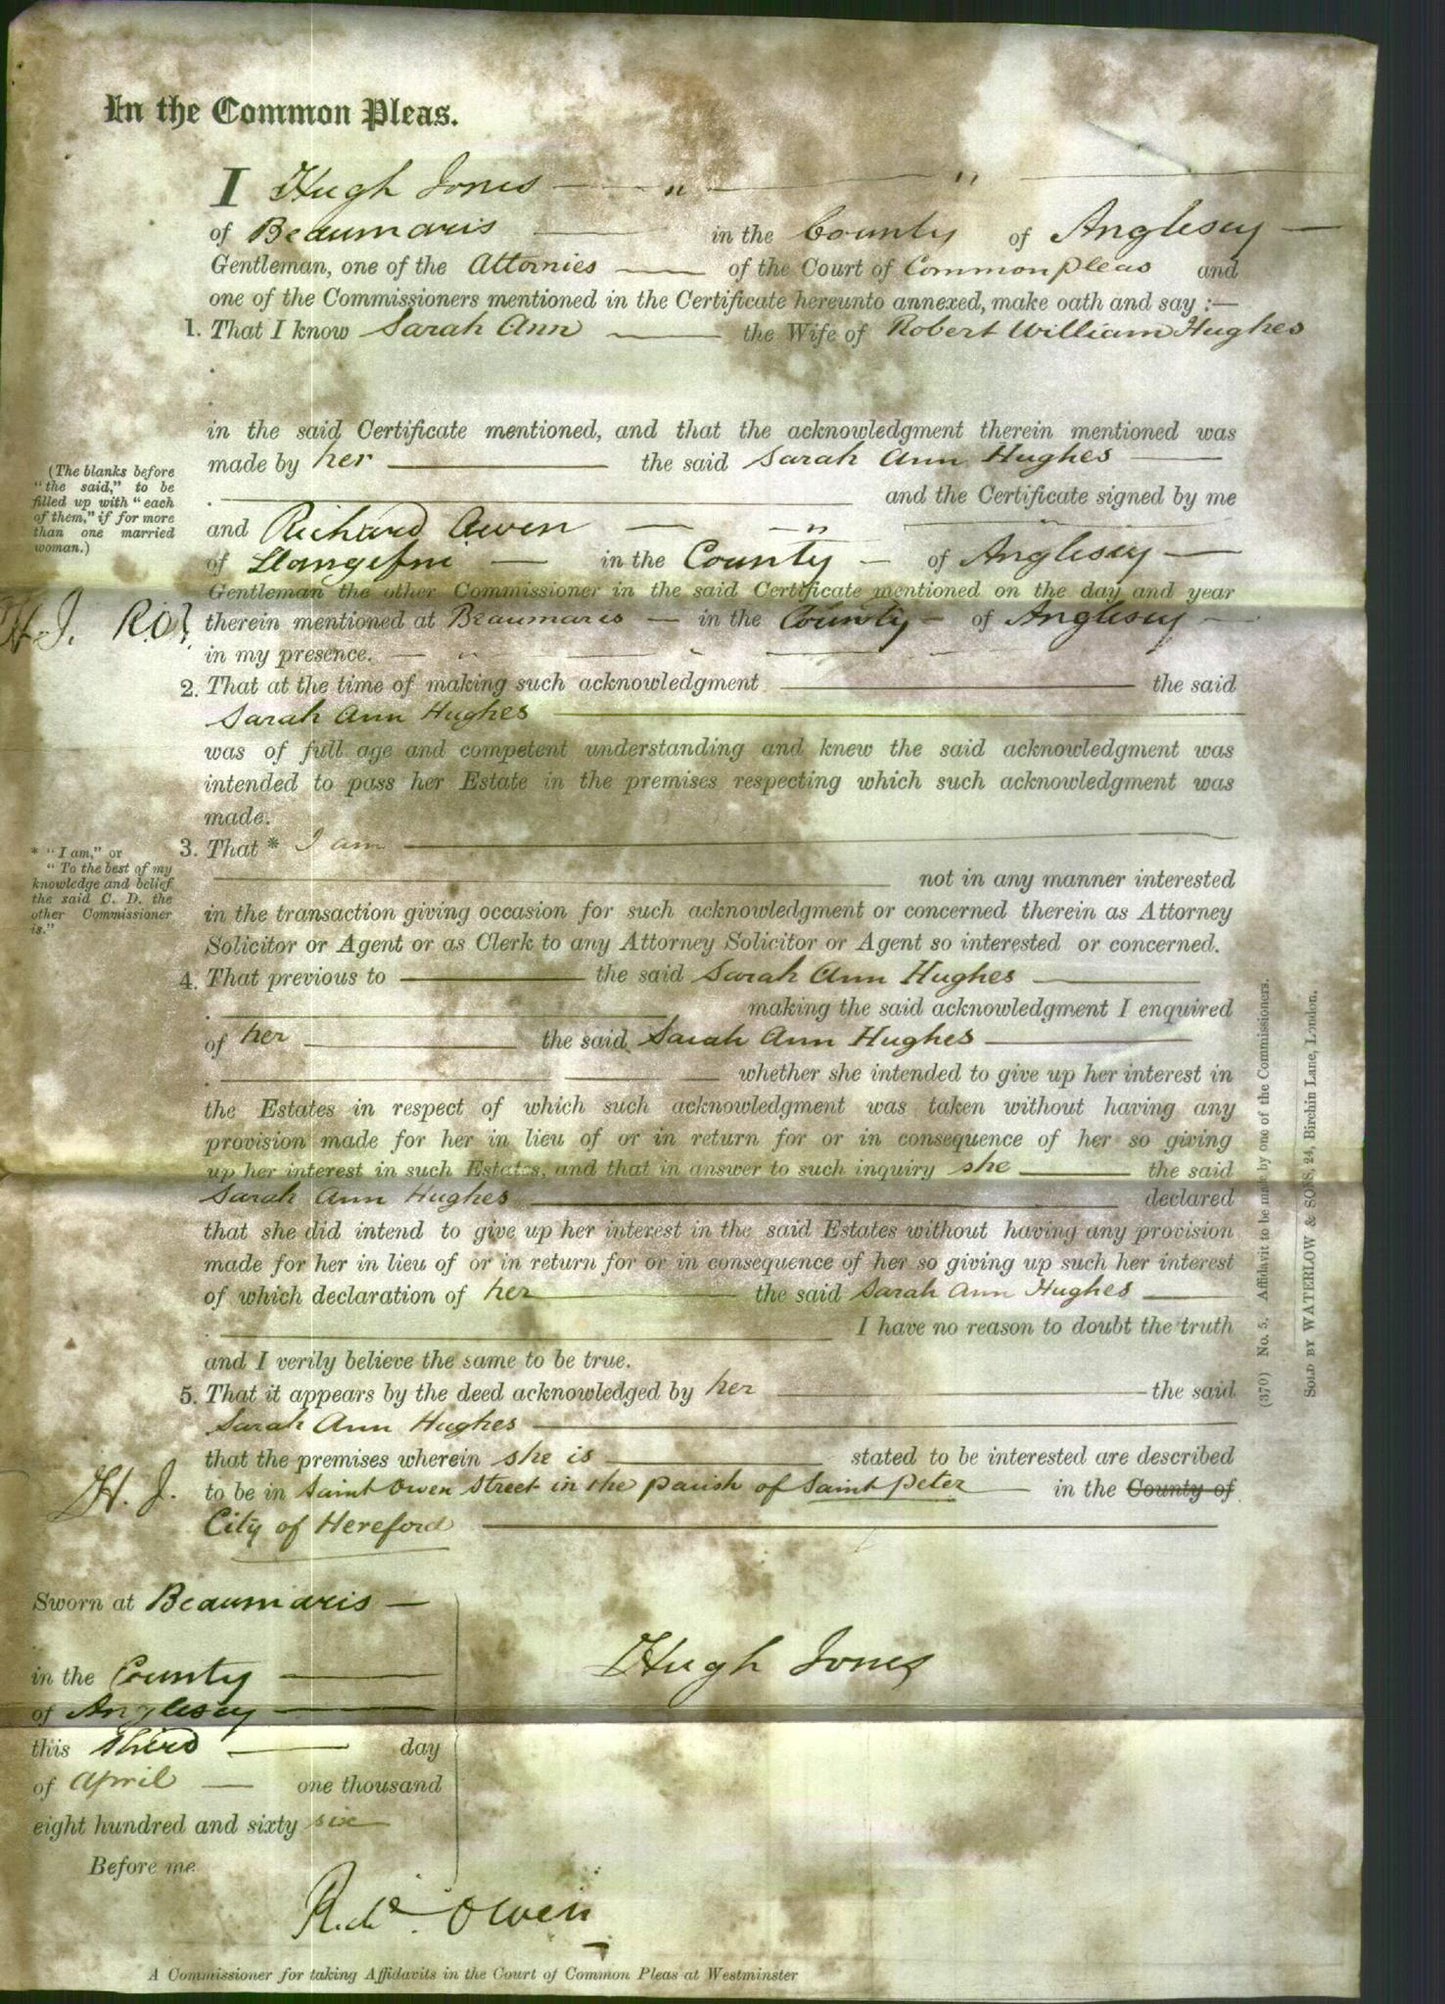 In the Common Pleas.
I Hugh Jones
of Beaumaris in the County of Anglesey
Gentleman, one of the Attornies of the Court of Common pleas and
one of the Commissioners mentioned in the Certificate hereunto annexed, make oath and say :—
1. That I know Sarah Ann the Wife of Robert William Hughes
in the said Certificate mentioned, and that the acknowledgment therein mentioned was
made by her the said Sarah Ann Hughes
and the Certificate signed by me
(The blanks before
"the said," to be
filled up with "each
of them," if for more
than one married
woman.)
and Richard Owen
of Llangefni in the County of Anglesey
Gentleman the other Commissioner in the said Certificate mentioned on the day and year
H. J. R.O. therein mentioned at Beaumaris in the County of Anglesey
in my presence.
2. That at the time of making such acknowledgment the said
Sarah Ann Hughes
was of full age and competent understanding and knew the said acknowledgment was
intended to pass her Estate in the premises respecting which such acknowledgment was
made.
3. That * I am
* "I am," or
"To the best of my
knowledge and belief
the said C. D. the
other Commissioner
is."
not in any manner interested
in the transaction giving occasion for such acknowledgment or concerned therein as Attorney
Solicitor or Agent or as Clerk to any Attorney Solicitor or Agent so interested or concerned.
4. That previous to the said Sarah Ann Hughes
making the said acknowledgment I enquired
of her the said Sarah Ann Hughes
whether she intended to give up her interest in
the Estates in respect of which such acknowledgment was taken without having any
provision made for her in lieu of or in return for or in consequence of her so giving
up her interest in such Estates, and that in answer to such inquiry she the said
Sarah Ann Hughes declared
that she did intend to give up her interest in the said Estates without having any provision
made for her in lieu of or in return for or in consequence of her so giving up such her interest
of which declaration of her the said Sarah Ann Hughes
I have no reason to doubt the truth
and I verily believe the same to be true.
5. That it appears by the deed acknowledged by her the said
Sarah Ann Hughes
that the premises wherein she is stated to be interested are described
H. J. to be in Saint Owen Street in the parish of Saint Peter in the County of
City of Hereford
(370) No. 5. Affidavit to be made by one of the Commissioners.
SOLD BY WATERLOW & SONS, 24, Birchin Lane, London.
Sworn at Beaumaris
in the County
of Anglesey
this third day
of April one thousand
eight hundred and sixty six
Before me
Hugh Jones
Richd. Owen
A Commissioner for taking Affidavits in the Court of Common Pleas at Westminster